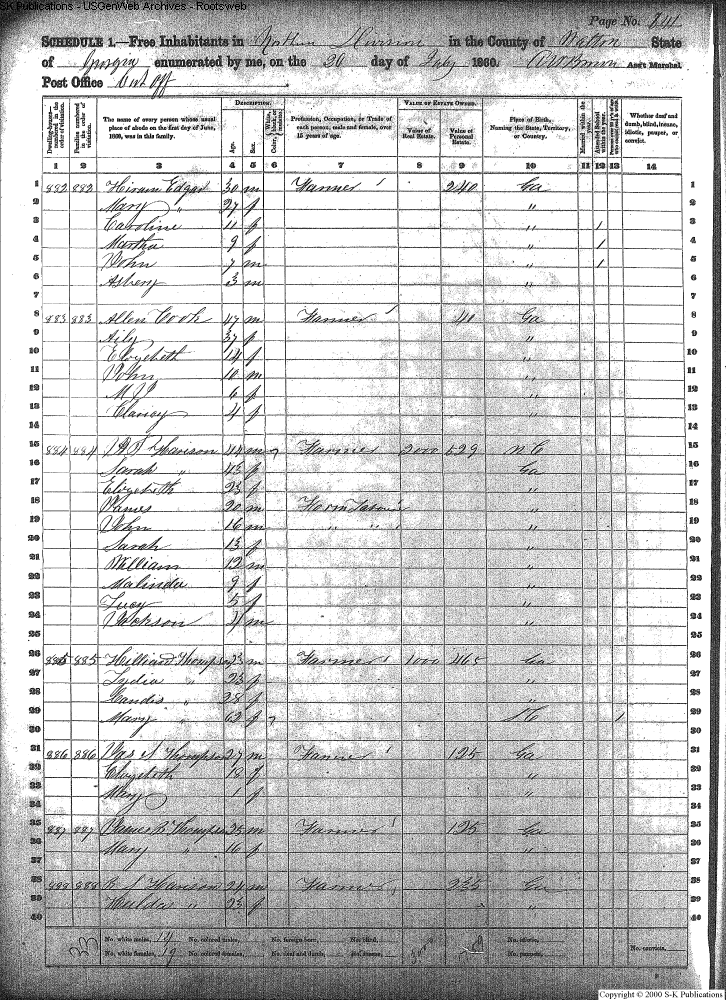 S-K Publications - USGenWeb Archives - Rootsweb
Page No.
SCHEDULE 1.—Free Inhabitants in Northern Division in the County of Walton State
of Georgia enumerated by me, on the 30 day of July 1860. Ass't Marshal.
Post Office Cut Off
DESCRIPTION. VALUE OF ESTATE OWNED.
Dwelling-houses—numbered in the order of visitation.
Families numbered in the order of visitation.
The name of every person whose usual place of abode on the first day of June, 1860, was in this family.
Age.
Sex.
Color, White, black, or mulatto.
Profession, Occupation, or Trade of each person, male and female, over 15 years of age.
Value of Real Estate.
Value of Personal Estate.
Place of Birth, Naming the State, Territory, or Country.
Married within the year.
Attended School within the year.
Whether deaf and dumb, blind, insane, idiotic, pauper, or convict.
1 2 3 4 5 6 7 8 9 10 11 12 13 14
1 882 882 Hiram Edgar 30 m Farmer 240 Ga 1
2 Mary " 27 f " 2
3 Caroline 11 f " 1 3
4 Martha 9 f " 1 4
5 John 7 m " 1 5
6 Asbery 3 m " 6
7 7
8 883 883 Allen Cook 47 m Farmer 40 Ga 8
9 Aily 37 f " 9
10 Elizebeth 14 f " 10
11 John 10 m " 11
12 M J 6 f " 12
13 Clancy 4 f " 13
14 14
15 884 884 Harison 44 m Farmer 2000 529 N C 15
16 Sarah " 43 f Ga 16
17 Elizebeth 23 f " 17
18 James 20 m " 18
19 John 16 m " " " 19
20 Sarah 13 f " 20
21 William 12 m " 21
22 Malinda 9 f " 22
23 Lucy 5 f " 23
24 Jackson m " 24
25 25
26 885 885 Hilliard Thompson 23 m Farmer 1000 465 Ga 26
27 Lydia " 23 f " 27
28 Candis " 28 f " 28
29 Mary " 62 f 1 29
30 30
31 886 886 Jas Thompson 27 m Farmer 125 Ga 31
32 Elizebeth 18 f " 32
33 Mary 1 f " 33
34 34
35 887 887 James R Thompson 25 m Farmer 125 Ga 35
36 Mary " 16 f " 36
37 37
38 888 888 Harison 24 m Farmer 235 Ga 38
39 Huldah " 23 f " 39
40 40
No. white males, 14 No. colored males, No. foreign born, No. blind, No. idiotic,
No. white females, 19 No. colored females, No. deaf and dumb, No. insane, No. paupers, No. convicts,
Copyright © 2000 S-K Publications